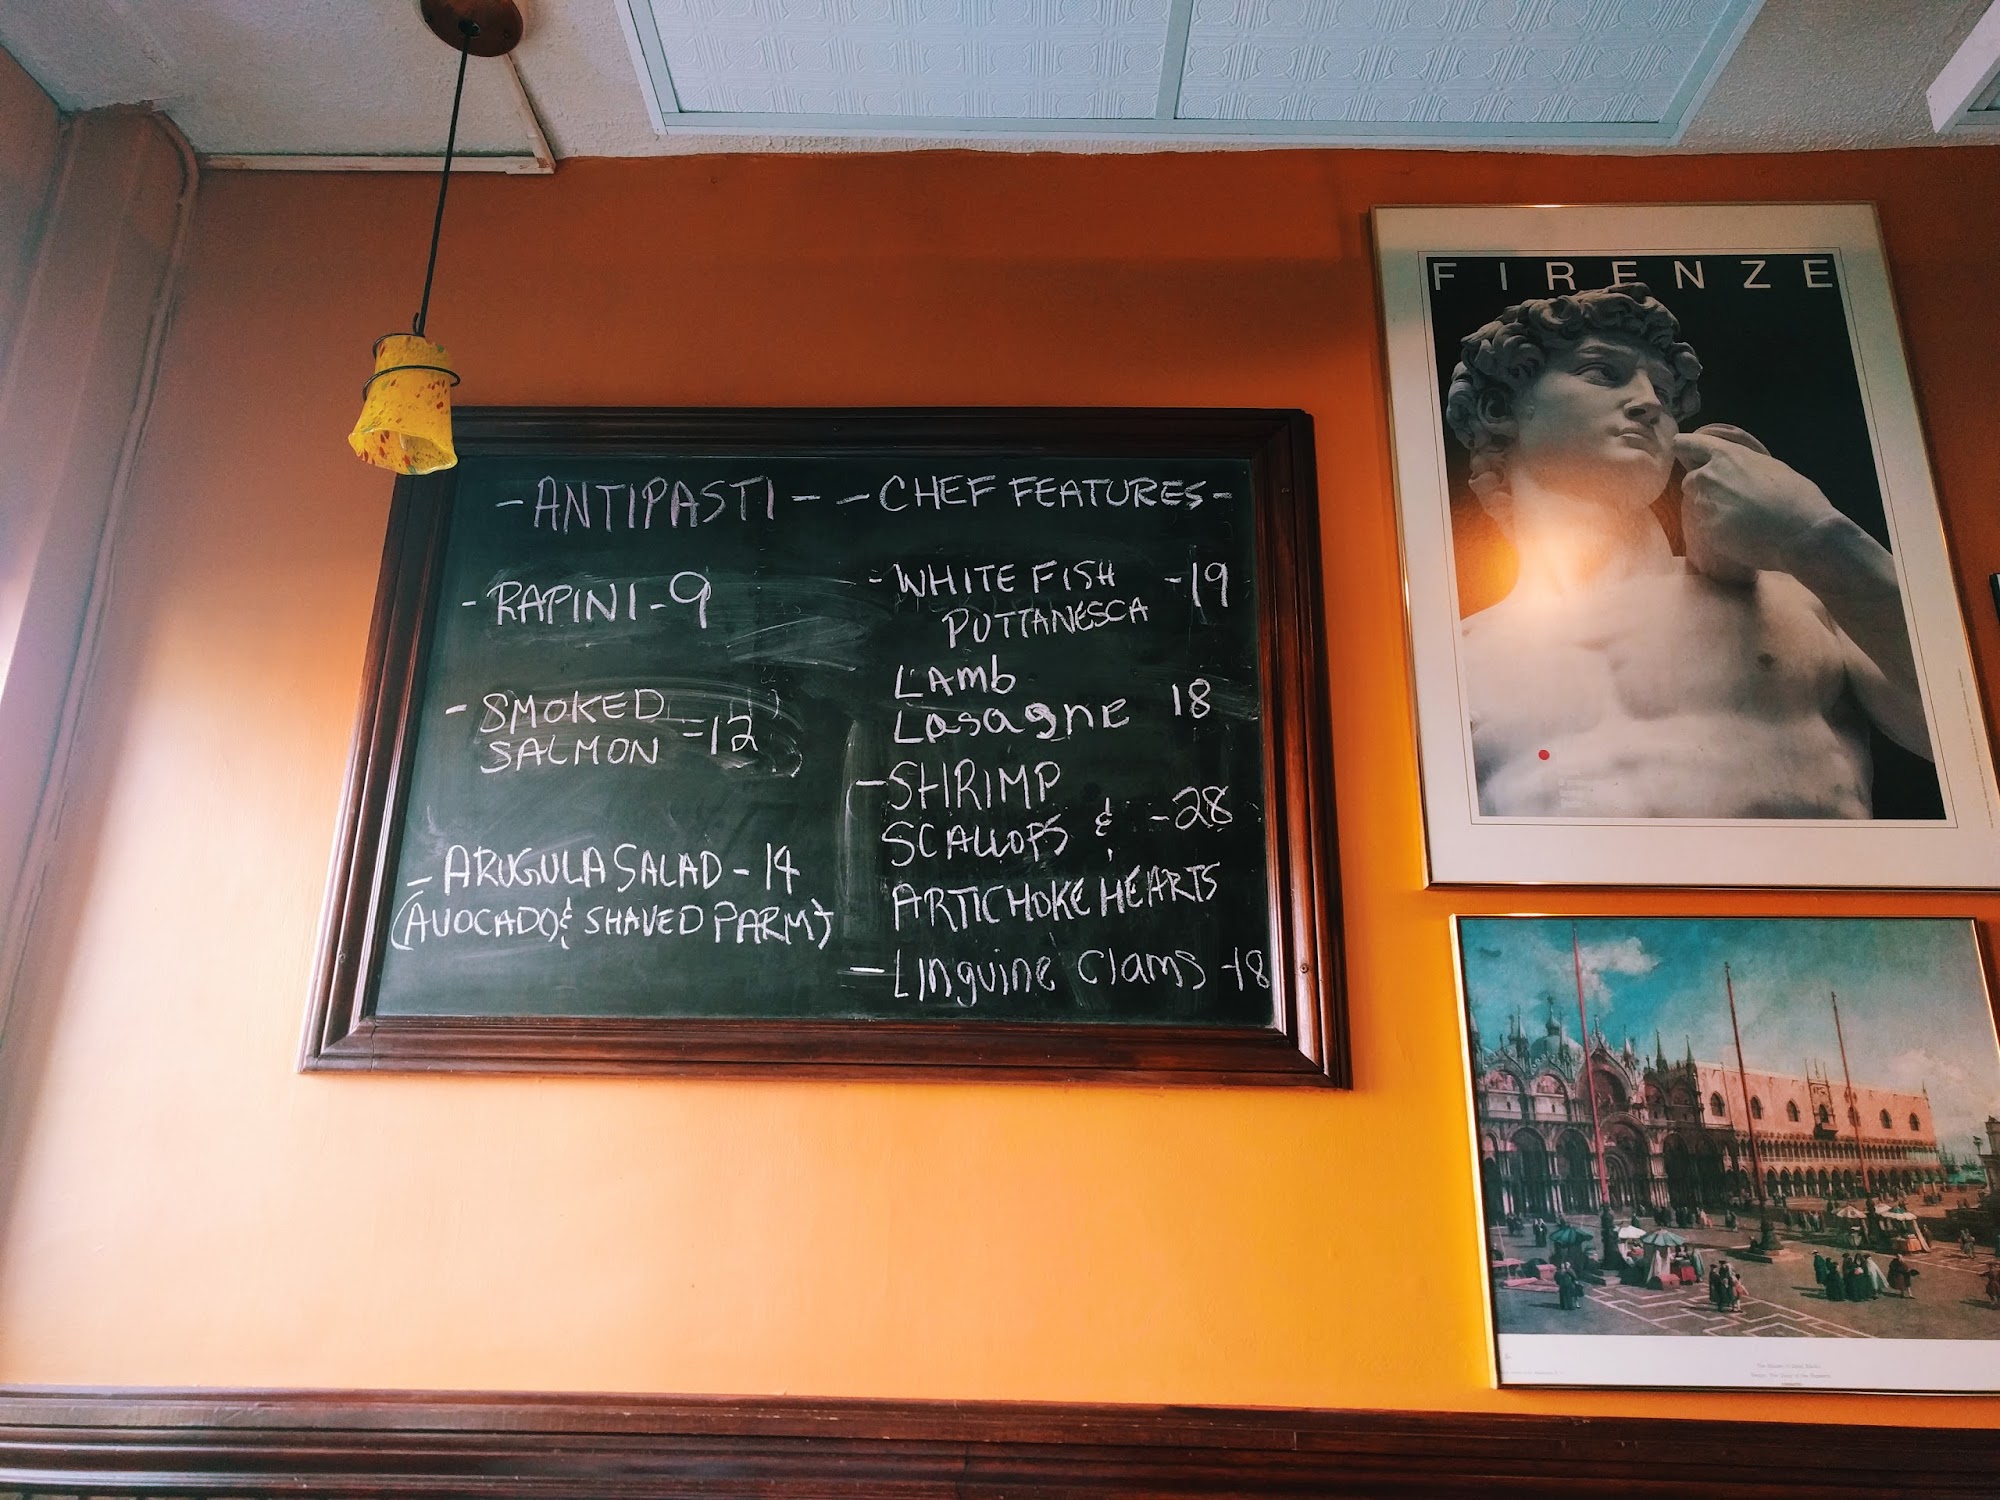 - ANTIPASTI -
- RAPINI - 9
- SMOKED
SALMON - 12
- ARUGULA SALAD - 14
(AVOCADO & SHAVED PARM)
- CHEF FEATURES -
- WHITE FISH - 19
PUTTANESCA
LAMB
LASAGNE 18
- SHRIMP
SCALLOPS & - 28
ARTICHOKE HEARTS
- LINGUINE CLAMS - 18
FIRENZE